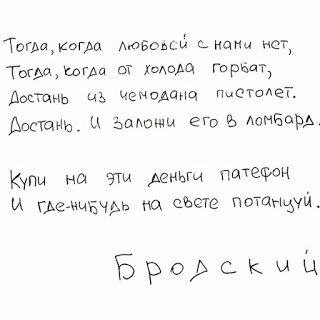 Тогда, когда любовей с нами нет,
Тогда, когда от холода горбат,
Достань из чемодана пистолет.
Достань. И заложи его в ломбард.
Купи на эти деньги патефон
И где-нибудь на свете потанцуй.
Бродский